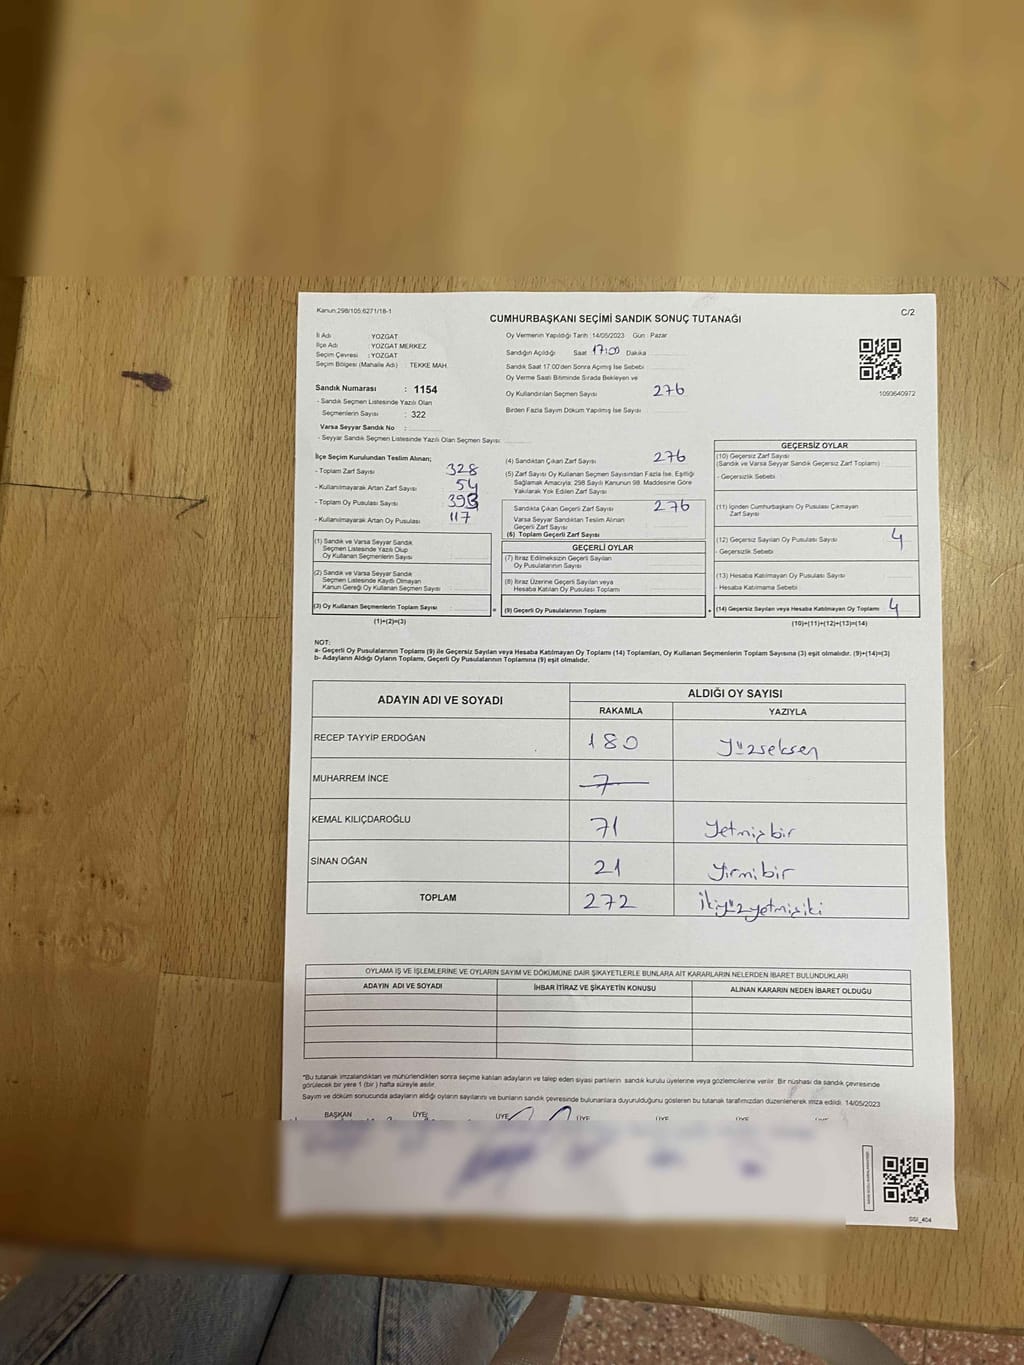 Kanun:298/105;6271/18-1
CUMHURBAŞKANI SEÇİMİ SANDIK SONUÇ TUTANAĞI
C/2
İl Adı : YOZGAT
İlçe Adı : YOZGAT MERKEZ
Seçim Çevresi : YOZGAT
Seçim Bölgesi (Mahalle Adı) : TEKKE MAH.
Sandık Numarası : 1154
- Sandık Seçmen Listesinde Yazılı Olan
Seçmenlerin Sayısı : 322
Varsa Seyyar Sandık No :
- Seyyar Sandık Seçmen Listesinde Yazılı Olan Seçmen Sayısı
Oy Vermenin Yapıldığı Tarih :14/05/2023 Gün : Pazar
Sandığın Açıldığı Saat 17:00 Dakika
Sandık Saat 17.00'den Sonra Açılmış İse Sebebi
Oy Verme Saati Bitiminde Sırada Bekleyen ve
Oy Kullandırılan Seçmen Sayısı 276
Birden Fazla Sayım Döküm Yapılmış İse Sayısı
1093640972
İlçe Seçim Kurulundan Teslim Alınan;
- Toplam Zarf Sayısı 328
- Kullanılmayarak Artan Zarf Sayısı 54
- Toplam Oy Pusulası Sayısı 393
- Kullanılmayarak Artan Oy Pusulası 117
(1) Sandık ve Varsa Seyyar Sandık
Seçmen Listesinde Yazılı Olup
Oy Kullanan Seçmenlerin Sayısı
(2) Sandık ve Varsa Seyyar Sandık
Seçmen Listesinde Kayıtlı Olmayan
Kanun Gereği Oy Kullanan Seçmen Sayısı
(3) Oy Kullanan Seçmenlerin Toplam Sayısı
(1)+(2)=(3)
(4) Sandıktan Çıkan Zarf Sayısı 276
(5) Zarf Sayısı Oy Kullanan Seçmen Sayısından Fazla İse, Eşitliği
Sağlamak Amacıyla; 298 Sayılı Kanunun 98. Maddesine Göre
Yakılarak Yok Edilen Zarf Sayısı
Sandıkta Çıkan Geçerli Zarf Sayısı 276
Varsa Seyyar Sandıktan Teslim Alınan
Geçerli Zarf Sayısı
(6) Toplam Geçerli Zarf Sayısı
GEÇERLİ OYLAR
(7) İtiraz Edilmeksizin Geçerli Sayılan
Oy Pusulalarının Sayısı
(8) İtiraz Üzerine Geçerli Sayılan veya
Hesaba Katılan Oy Pusulası Toplamı
= (9) Geçerli Oy Pusulalarının Toplamı
GEÇERSİZ OYLAR
(10) Geçersiz Zarf Sayısı
(Sandık ve Varsa Seyyar Sandık Geçersiz Zarf Toplamı)
- Geçersizlik Sebebi
(11) İçinden Cumhurbaşkanı Oy Pusulası Çıkmayan
Zarf Sayısı
(12) Geçersiz Sayılan Oy Pusulası Sayısı 4
- Geçersizlik Sebebi
(13) Hesaba Katılmayan Oy Pusulası Sayısı
- Hesaba Katılmama Sebebi
+ (14) Geçersiz Sayılan veya Hesaba Katılmayan Oy Toplamı 4
(10)+(11)+(12)+(13)=(14)
NOT:
a- Geçerli Oy Pusulalarının Toplamı (9) ile Geçersiz Sayılan veya Hesaba Katılmayan Oy Toplamı (14) Toplamları, Oy Kullanan Seçmenlerin Toplam Sayısına (3) eşit olmalıdır. (9)+(14)=(3)
b- Adayların Aldığı Oyların Toplamı, Geçerli Oy Pusulalarının Toplamına (9) eşit olmalıdır.
ADAYIN ADI VE SOYADI ALDIĞI OY SAYISI
RAKAMLA YAZIYLA
RECEP TAYYİP ERDOĞAN 180 Yüzseksen
MUHARREM İNCE 7
KEMAL KILIÇDAROĞLU 71 Yetmişbir
SİNAN OĞAN 21 Yirmibir
TOPLAM 272 İkiyüzyetmişiki
OYLAMA İŞ VE İŞLEMLERİNE VE OYLARIN SAYIM VE DÖKÜMÜNE DAİR ŞİKAYETLERLE BUNLARA AİT KARARLARIN NELERDEN İBARET BULUNDUKLARI
ADAYIN ADI VE SOYADI İHBAR İTİRAZ VE ŞİKAYETİN KONUSU ALINAN KARARIN NEDEN İBARET OLDUĞU
*Bu tutanak imzalandıktan ve mühürlendikten sonra seçime katılan adayların ve talep eden siyasi partilerin sandık kurulu üyelerine veya gözlemcilerine verilir. Bir nüshası da sandık çevresinde
görülecek bir yere 1 (bir ) hafta süreyle asılır.
Sayım ve döküm sonucunda adayların aldığı oyların sayılarını ve bunların sandık çevresinde bulunanlara duyurulduğunu gösteren bu tutanak tarafımızdan düzenlenerek imza edildi. 14/05/2023
BAŞKAN ÜYE ÜYE ÜYE ÜYE ÜYE ÜYE
SSI_404